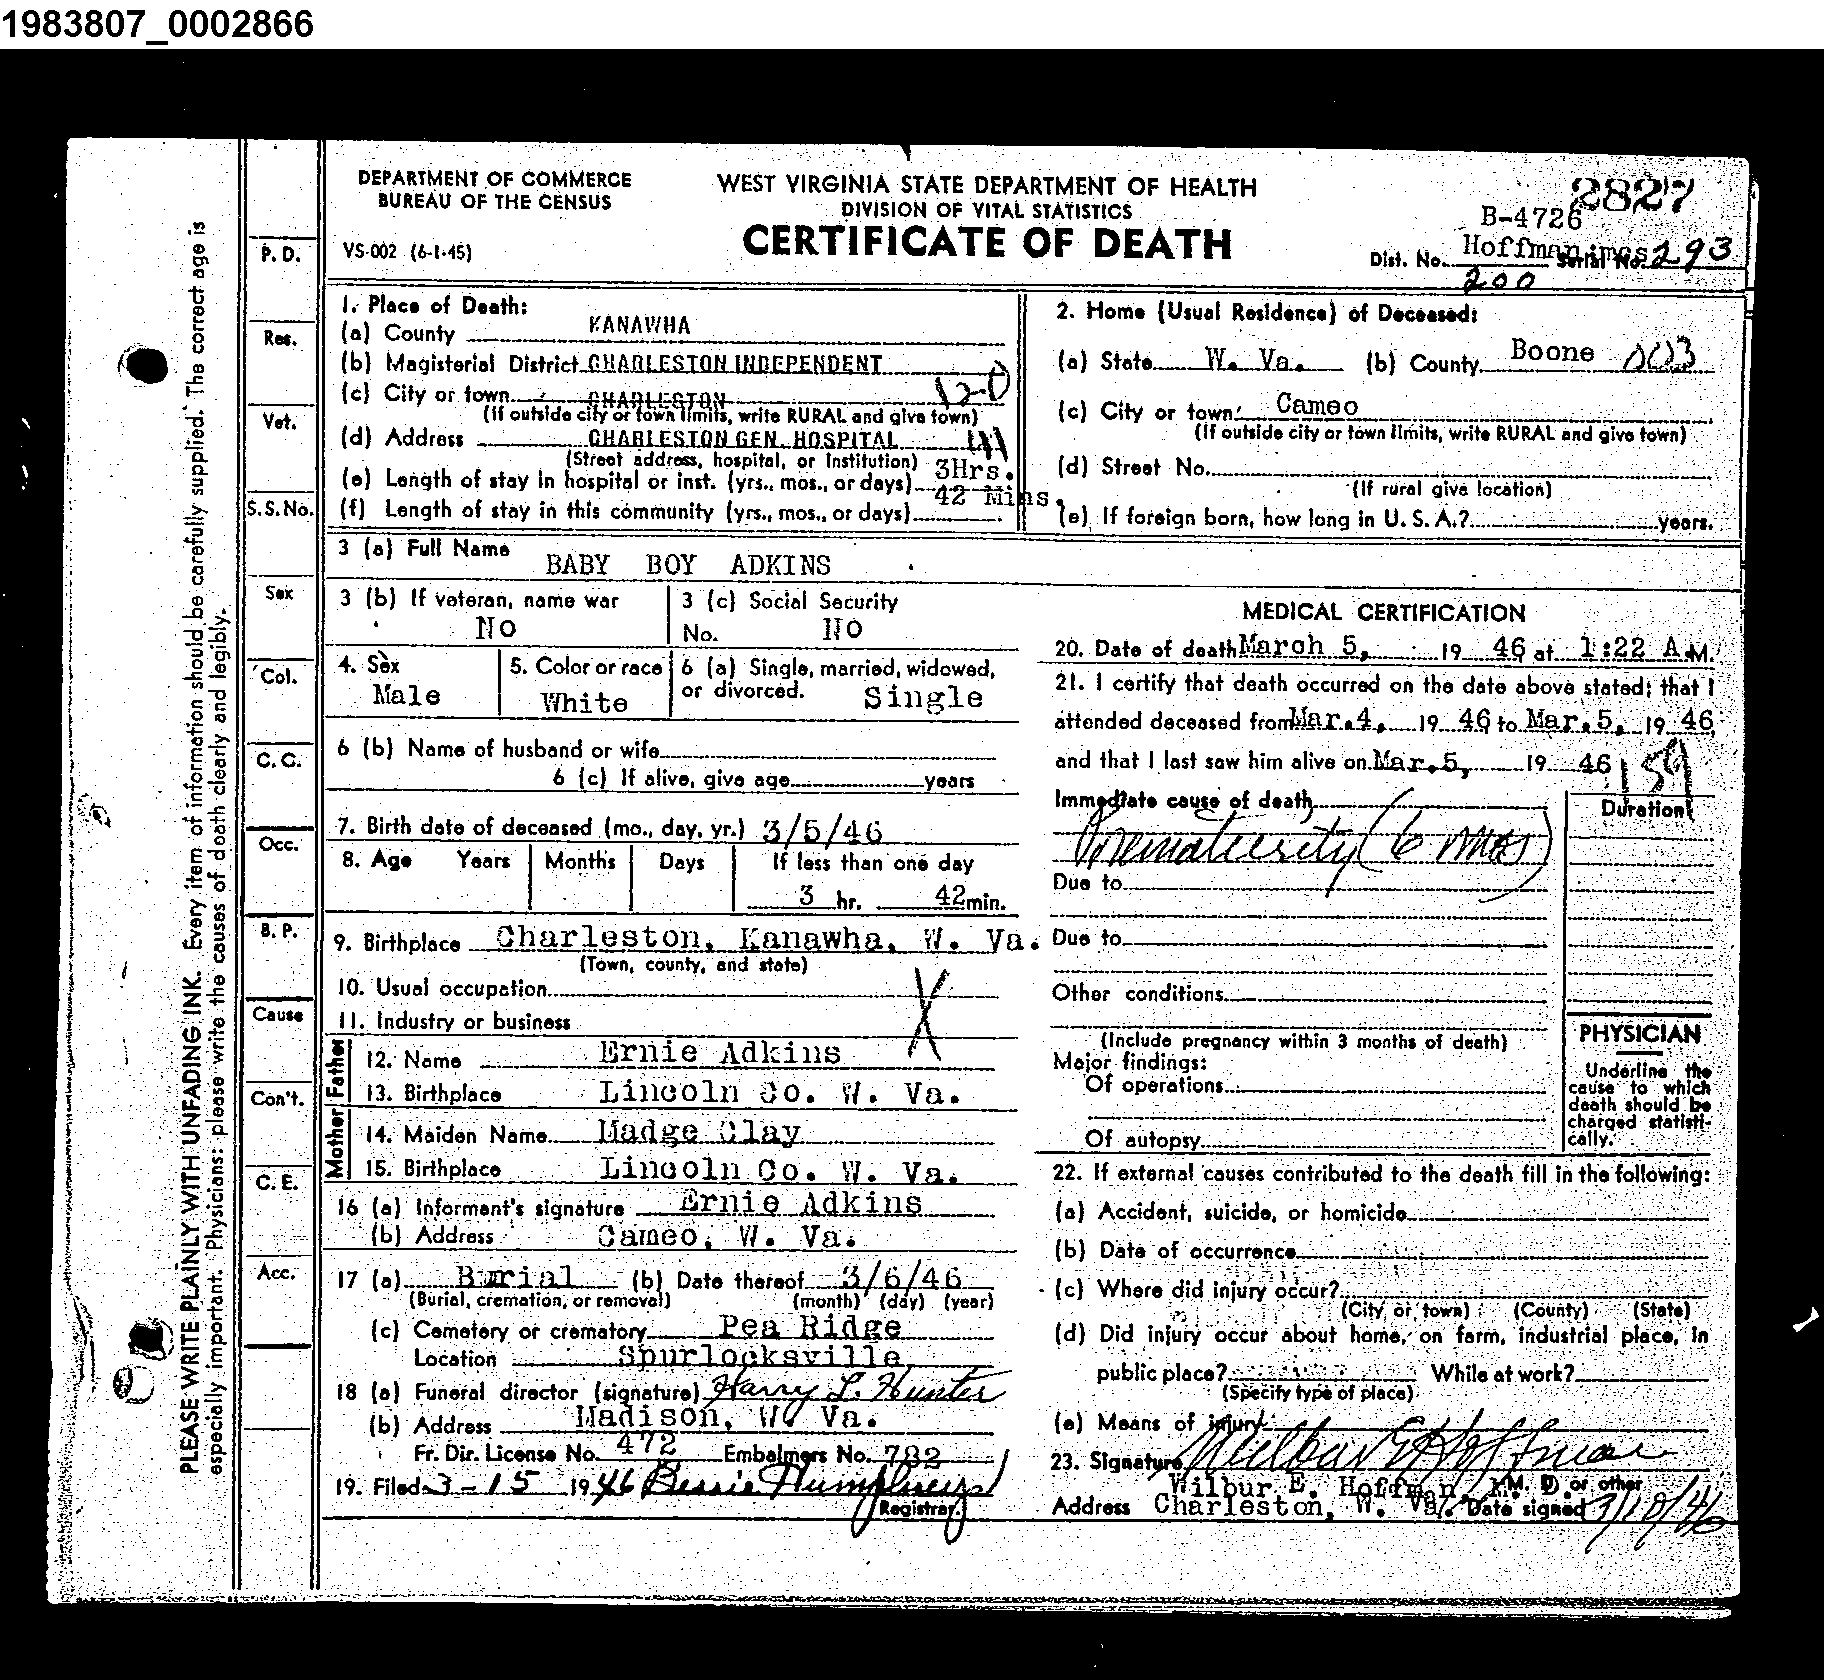 1983807_0002866
DEPARTMENT OF COMMERCE
BUREAU OF THE CENSUS
VS-002 (6-1-45)
WEST VIRGINIA STATE DEPARTMENT OF HEALTH
DIVISION OF VITAL STATISTICS
CERTIFICATE OF DEATH
2827
B-4726
Dist. No. Hoffman-imes Serial No. 293
200
PLEASE WRITE PLAINLY WITH UNFADING INK. Every item of information should be carefully supplied. The correct age is
especially important. Physicians: please write the causes of death clearly and legibly.
P. D.
Res.
Vet.
S.S. No.
Sex
Col.
C. C.
Occ.
B. P.
Cause
Con't.
C. E.
Acc.
1. Place of Death:
(a) County KANAWHA
(b) Magisterial District CHARLESTON INDEPENDENT
(c) City or town CHARLESTON
(If outside city or town limits, write RURAL and give town)
(d) Address CHARLESTON GEN. HOSPITAL
(Street address, hospital, or institution)
(e) Length of stay in hospital or inst. (yrs., mos., or days) 3Hrs.
42 Mins.
(f) Length of stay in this community (yrs., mos., or days)
2. Home (Usual Residence) of Deceased:
(a) State W. Va. (b) County Boone 003
(c) City or town Cameo
(If outside city or town limits, write RURAL and give town)
(d) Street No.
(If rural give location)
(e) If foreign born, how long in U. S. A.? years.
3 (a) Full Name BABY BOY ADKINS
3 (b) If veteran, name war No
3 (c) Social Security No. NO
4. Sex Male
5. Color or race White
6 (a) Single, married, widowed,
or divorced. Single
6 (b) Name of husband or wife
6 (c) If alive, give age years
7. Birth date of deceased (mo., day, yr.) 3/5/46
8. Age Years Months Days If less than one day
3 hr. 42 min.
9. Birthplace Charleston, Kanawha, W. Va.
(Town, county, and state)
10. Usual occupation
11. Industry or business
X
Father
12. Name Ernie Adkins
13. Birthplace Lincoln Co. W. Va.
Mother
14. Maiden Name Madge Clay
15. Birthplace Lincoln Co. W. Va.
16 (a) Informant's signature Ernie Adkins
(b) Address Cameo, W. Va.
17 (a) Burial (b) Date thereof 3/6/46
(Burial, cremation, or removal) (month) (day) (year)
(c) Cemetery or crematory Pea Ridge
Location Spurlocksville,
18 (a) Funeral director (signature) Harry L. Hunter
(b) Address Madison, W. Va.
Fr. Dir. License No. 472 Embalmers No. 782
19. Filed 3-15 1946 Bessie Humphreys
Registrar
MEDICAL CERTIFICATION
20. Date of death March 5, 19 46 at 1:22 A.M.
21. I certify that death occurred on the date above stated; that I
attended deceased from Mar.4, 19 46 to Mar.5, 19 46,
and that I last saw him alive on Mar.5, 19 46
159
Immediate cause of death Duration
Prematurity (6 mos)
Due to
Due to
Other conditions
(Include pregnancy within 3 months of death)
Major findings:
Of operations
Of autopsy
PHYSICIAN
Underline the
cause to which
death should be
charged statisti-
cally.
22. If external causes contributed to the death fill in the following:
(a) Accident, suicide, or homicide
(b) Date of occurrence
(c) Where did injury occur?
(City or town) (County) (State)
(d) Did injury occur about home, on farm, industrial place, in
public place? While at work?
(Specify type of place)
(e) Means of injury
23. Signature Wilbur E Hoffman
Wilbur E. Hoffman, M. D. or other
Address Charleston, W. Va. Date signed 3/10/46